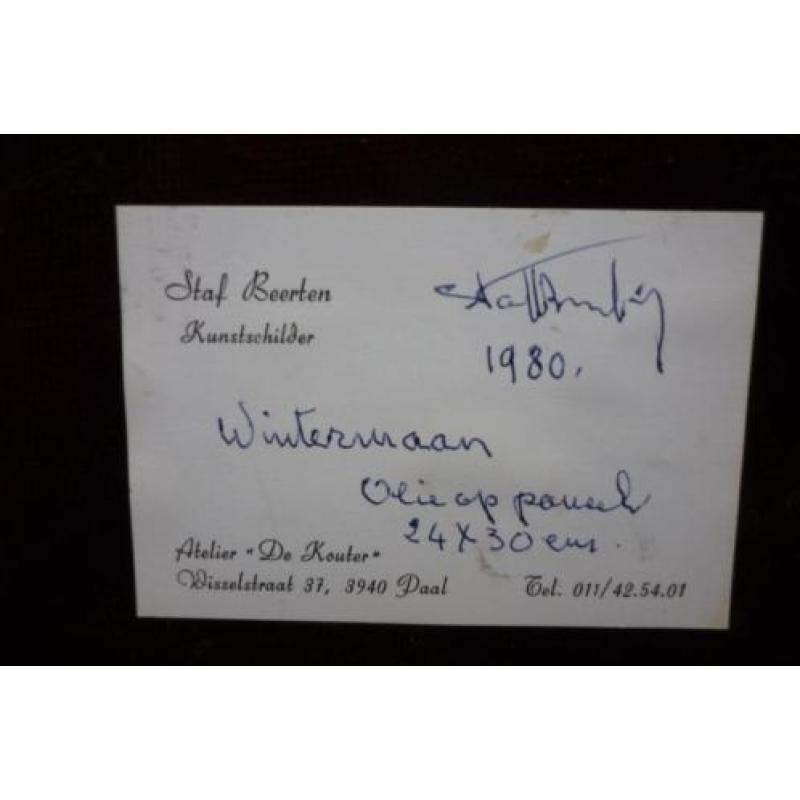 Staf Beerten
Kunstschilder
1980.
Wintermaan
Olie op paneel
24 X 30 cm.
Atelier "De Kouter"
Wisselstraat 37, 3940 Paal
Tel. 011/42.54.01